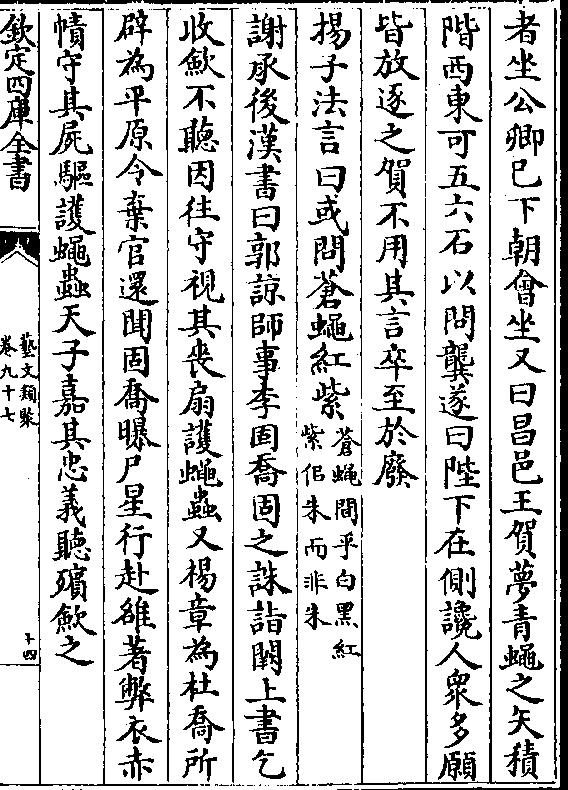 者坐公卿已下朝會坐又曰昌邑王賀夢青蠅之矢積
階西東可五六石以問龔遂曰陛下在側讒人衆多願
皆放逐之賀不用其言卒至於廢
揚子法言曰或問蒼蠅紅紫蒼蠅間乎白黑紅
紫佀朱而非朱
謝承後漢書曰郭諒師事李固喬固之誅詣闕上書乞
收斂不聽因往守視其喪扇護蠅蟲又楊章為杜喬所
辟為平原令棄官還聞固喬曝尸星行赴雒著弊衣赤
幘守其屍驅護蠅蟲天子嘉其忠義聽殯斂之
欽定四庫全書
藝文類聚
卷九十七
十四